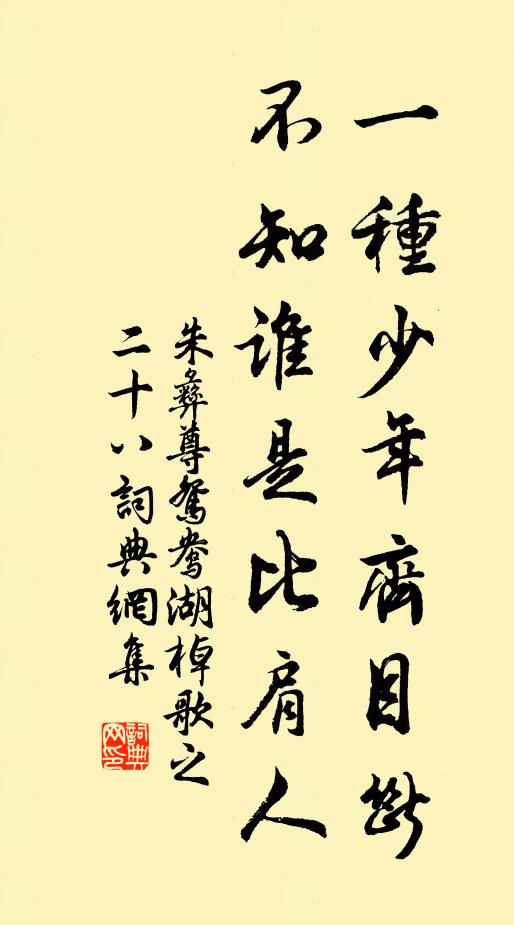 一種少年齊目斷
不知誰是比肩人
朱彝尊鴛鴦湖棹歌之
二十八詞典網集
詞典網印